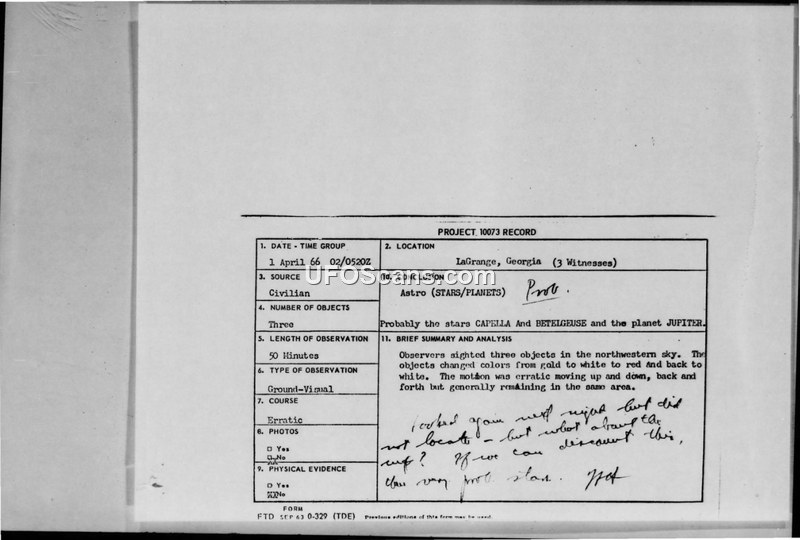 PROJECT 10073 RECORD
1. DATE - TIME GROUP
1 April 66 02/0520Z
2. LOCATION
LaGrange, Georgia (3 Witnesses)
3. SOURCE
Civilian
10. CONCLUSION
Astro (STARS/PLANETS) Prob.
Probably the stars CAPELLA And BETELGEUSE and the planet JUPITER.
4. NUMBER OF OBJECTS
Three
5. LENGTH OF OBSERVATION
50 Minutes
6. TYPE OF OBSERVATION
Ground-Visual
7. COURSE
Erratic
8. PHOTOS
□ Yes
□ No
9. PHYSICAL EVIDENCE
□ Yes
□ No
11. BRIEF SUMMARY AND ANALYSIS
Observers sighted three objects in the northwestern sky. The
objects changed colors from gold to white to red And back to
white. The motion was erratic moving up and down, back and
forth but generally remaining in the same area.
looked again next night but did
not locate - but what about the
wife? If we can discount this,
then very prob stars.
FORM
FTD SEP 63 0-329 (TDE) Previous editions of this form may be used.
UFOScans.com